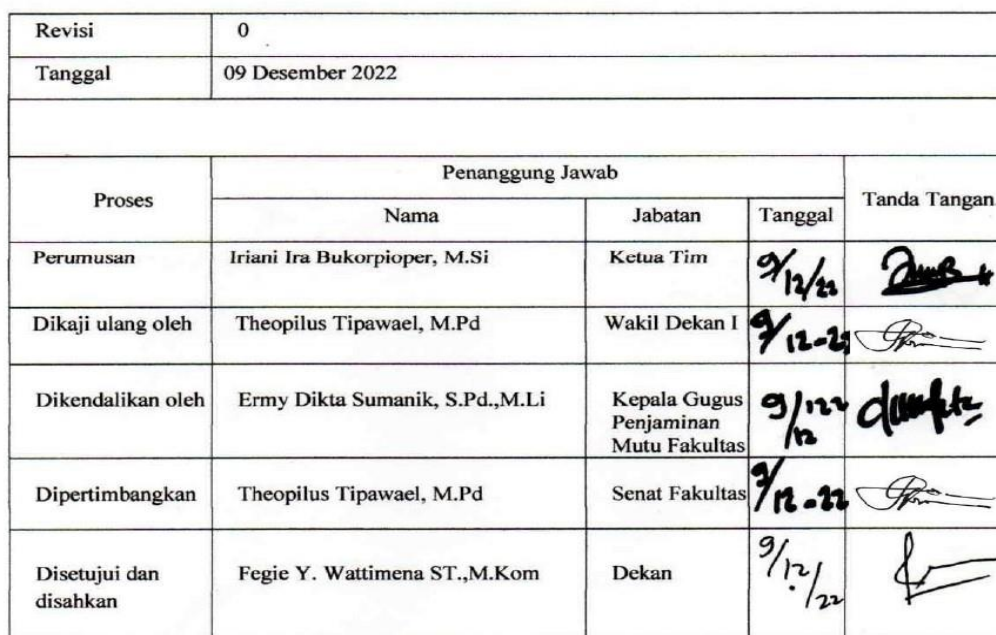 Revisi 0
Tanggal 09 Desember 2022
Penanggung Jawab
Proses Nama Jabatan Tanggal Tanda Tangan
Perumusan Iriani Ira Bukorpioper, M.Si Ketua Tim 9/12/22
Dikaji ulang oleh Theopilus Tipawael, M.Pd Wakil Dekan I 9/12-22
Dikendalikan oleh Ermy Dikta Sumanik, S.Pd.,M.Li Kepala Gugus 9/12
Penjaminan
Mutu Fakultas
Dipertimbangkan Theopilus Tipawael, M.Pd Senat Fakultas 9/12-22
Disetujui dan Fegie Y. Wattimena ST.,M.Kom Dekan 9/12/22
disahkan